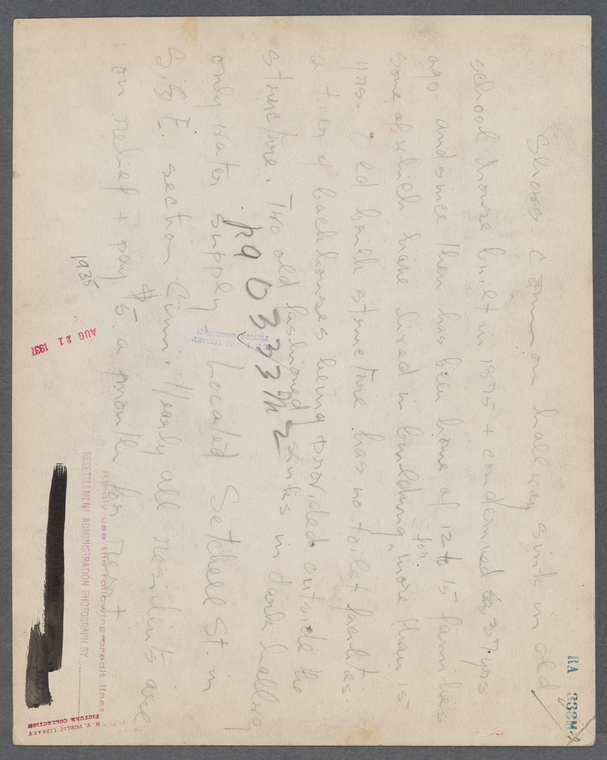 Shows Common hallway sink in old
school house built in 1875 + condemned 37 yrs
ago and since then has been home of 12 to 15 families
some of which have lived in building for more than 15
yrs. Old brick structure has no toilet facilities
a tier of back houses being provided outside the
structure. Two old fashioned sinks in dark hallway
only water supply. Located Setchell St. in
E. section Cinn. Nearly all residents are
on relief + pay $5. a month for rent
1935
AUG 21 1937
RA 333M-2
Kindly use the following credit line:
RESETTLEMENT ADMINISTRATION PHOTOGRAPH BY
N. Y. PUBLIC LIBRARY
PICTURE COLLECTION